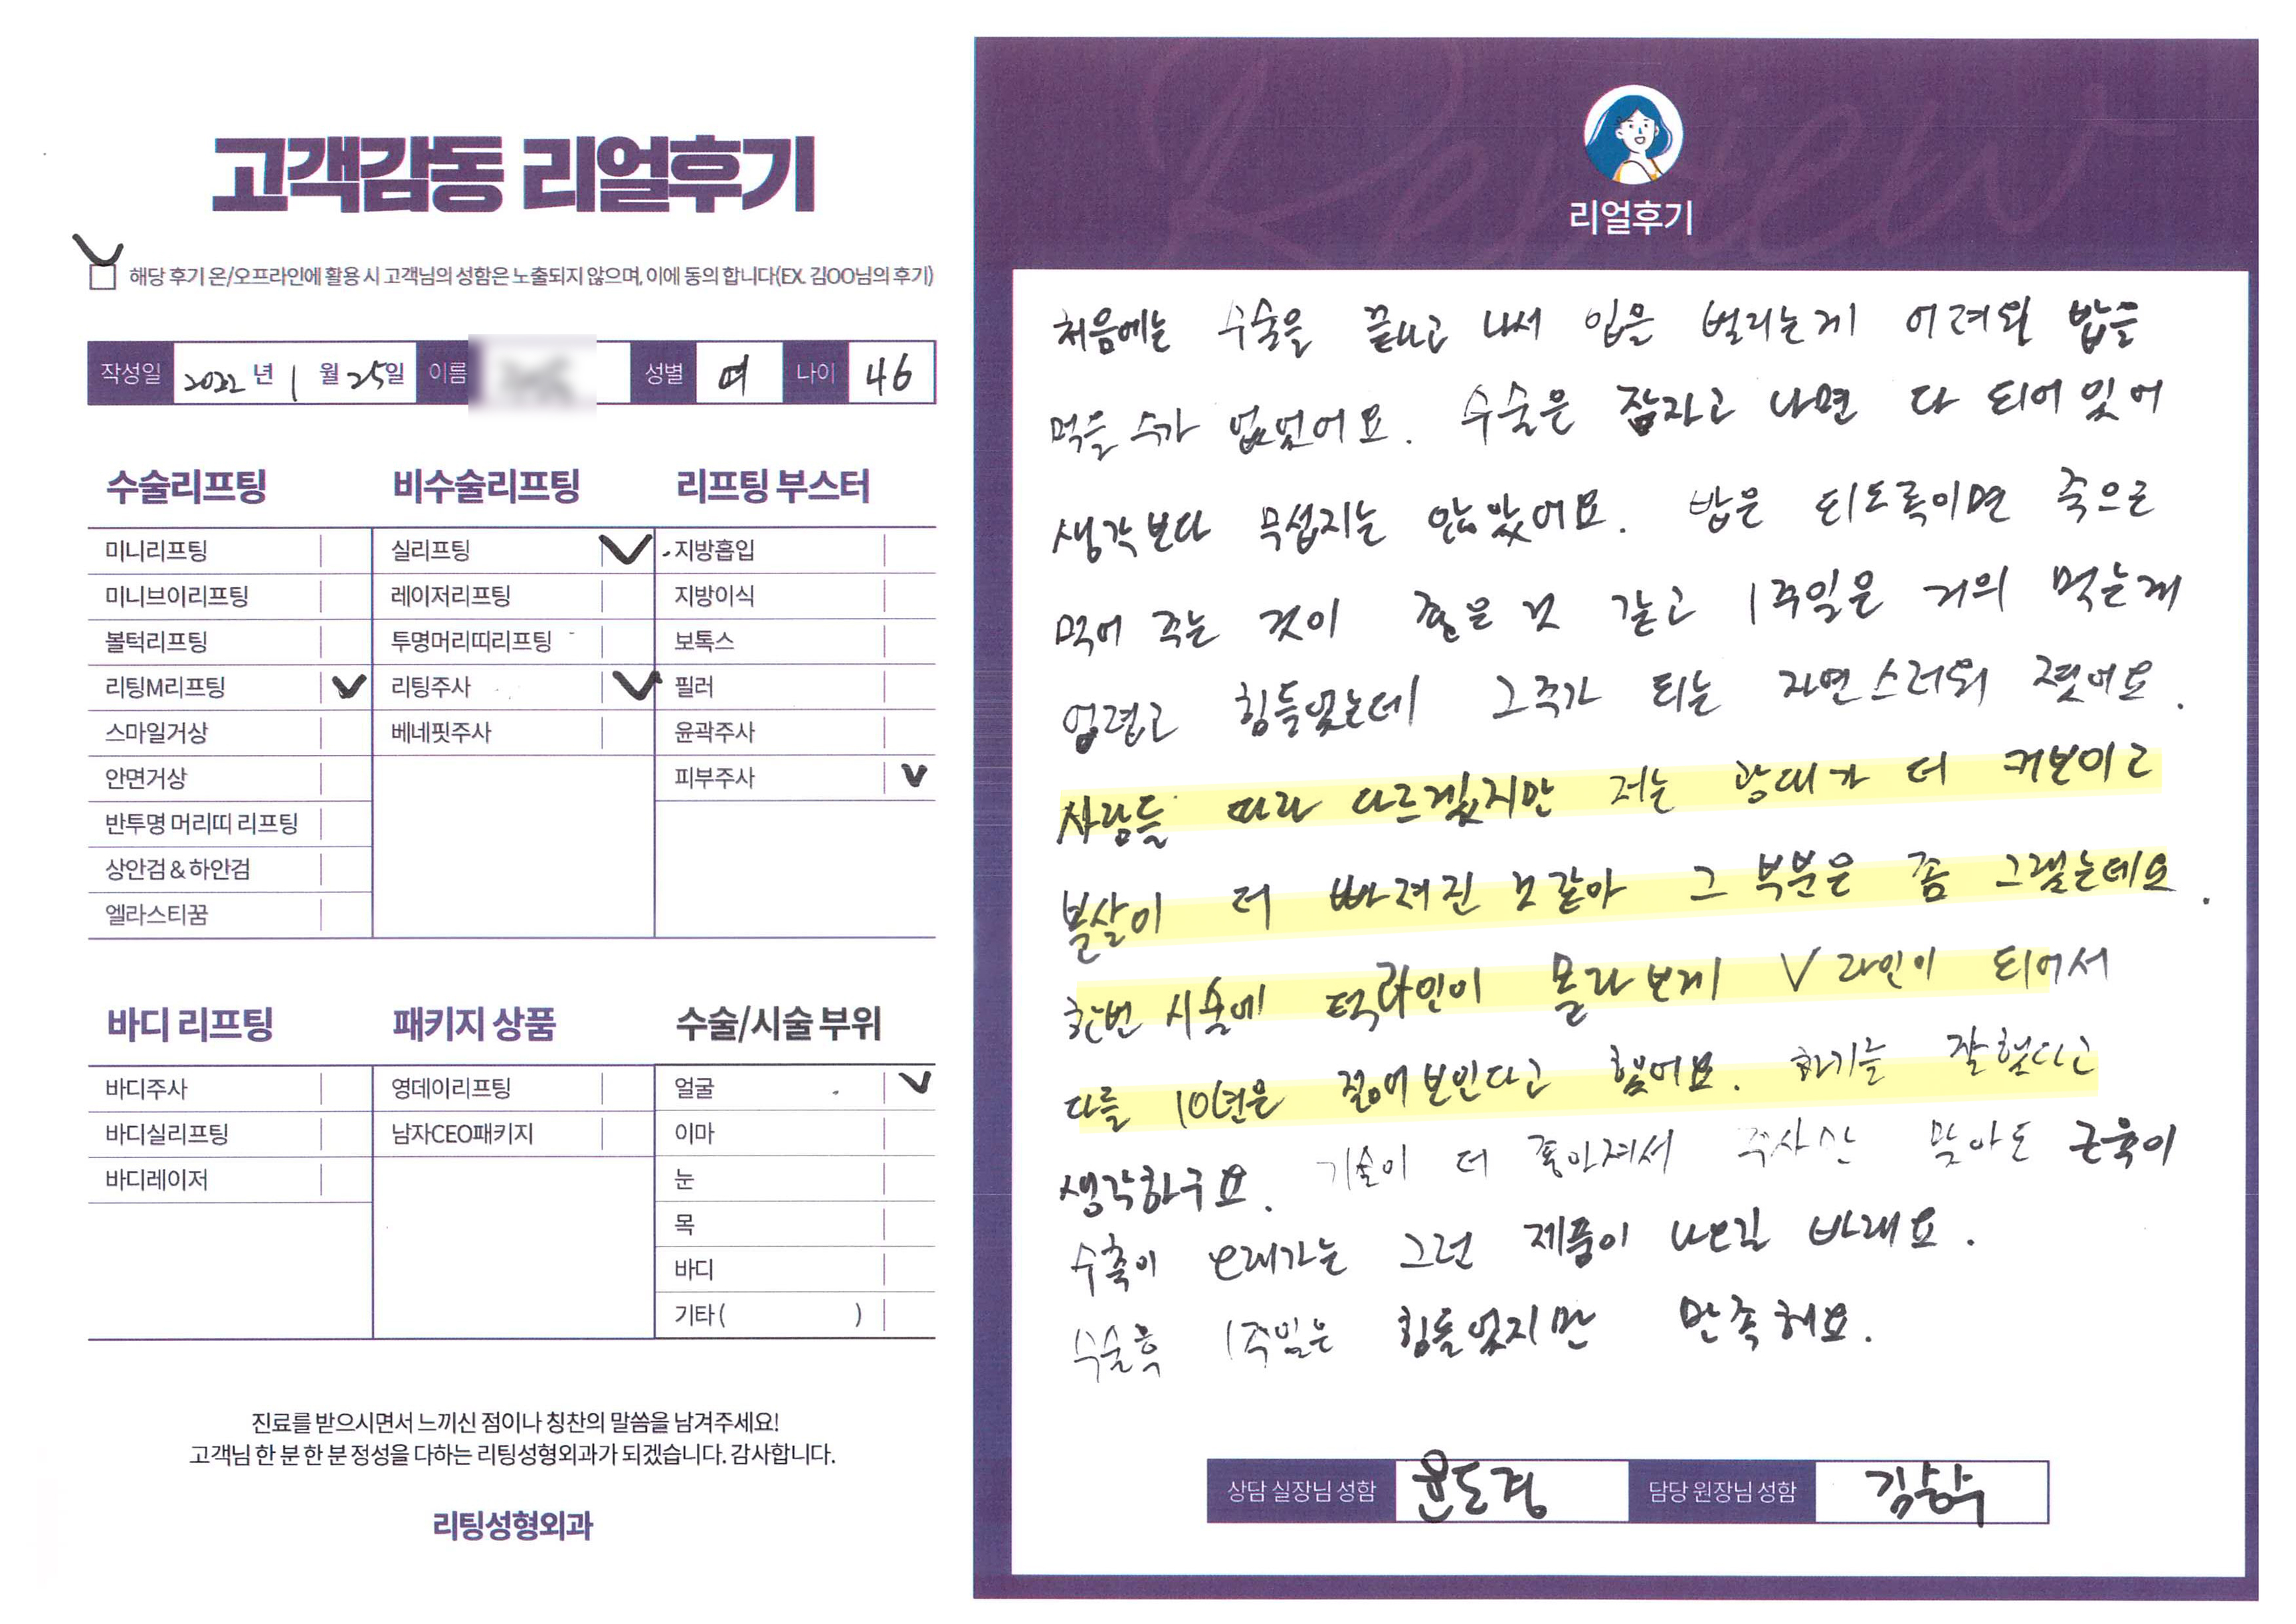 고객감동 리얼후기
해당 후기 온/오프라인에 활용 시 고객님의 성함은 노출되지 않으며, 이에 동의 합니다(EX. 김OO님의 후기)
작성일 2022 년 1 월 25일 이름 성별 여 나이 46
수술리프팅 비수술리프팅 리프팅 부스터
미니리프팅 실리프팅 지방흡입
미니브이리프팅 레이저리프팅 지방이식
볼턱리프팅 투명머리띠리프팅 보톡스
리팅M리프팅 리팅주사 필러
스마일거상 베네핏주사 윤곽주사
안면거상 피부주사
반투명 머리띠 리프팅
상안검 & 하안검
엘라스티꿈
바디 리프팅 패키지 상품 수술/시술 부위
바디주사 영데이리프팅 얼굴
바디실리프팅 남자CEO패키지 이마
바디레이저 눈
목
바디
기타 ( )
진료를 받으시면서 느끼신 점이나 칭찬의 말씀을 남겨주세요!
고객님 한 분 한 분 정성을 다하는 리팅성형외과가 되겠습니다. 감사합니다.
리팅성형외과
Review
리얼후기
처음에는 수술을 끝내고 나서 입을 벌리는게 어려워 밥을
먹을 수가 없었어요. 수술은 잠자고 나면 다 되어 있어
생각보다 무섭지는 않았어요. 밥은 되도록이면 죽으로
먹어 주는 것이 좋은 것 같고 1주일은 거의 먹는게
어렵고 힘들었는데 그주가 되는 자연스러워 졌어요.
사람들 따라 다르겠지만 저는 광대가 더 커보이고
볼살이 더 빠져진 것 같아 그 부분은 좀 그랬는데요.
한번 시술에 턱라인이 몰라보게 V라인이 되어서
다들 10년은 젊어보인다고 했어요. 하기를 잘했다고
생각하구요. 기술이 더 좋아져서 주사만 맞아도 근육이
수축이 오래가는 그런 제품이 나오길 바래요.
수술후 1주일은 힘들었지만 만족해요.
상담 실장님 성함 윤도경 담당 원장님 성함